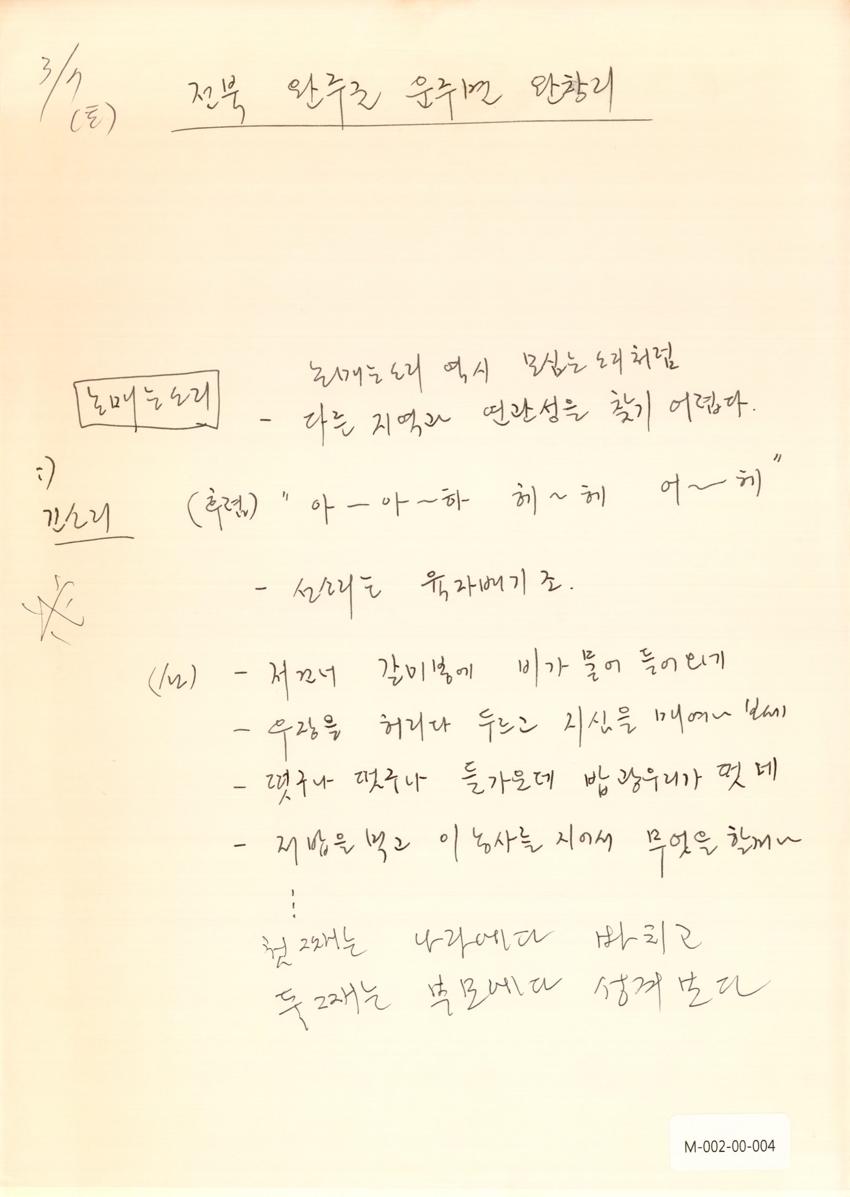 3/7
(토)
전북 완주군 운주면 완창리
논매는소리 역시 모심는소리처럼
논매는소리 - 다른 지역과 연관성을 찾기 어렵다.
:)
긴소리 (후렴) " 아 — 아~하 헤~헤 어~헤 "
- 선소리는 육자배기 조.
- 저건너 갈미봉에 비가 묻어 들어오기
- 우장을 허리다 두르고 지심을 매여나 보세
- 떳구나 떳구나 들가운데 밥광우리가 떳네
- 저 밥을 먹고 이 농사를 지어서 무엇을 할꺼나
첫째는 나라에다 바치고
둑째는 부모에다 성계보다
M-002-00-004